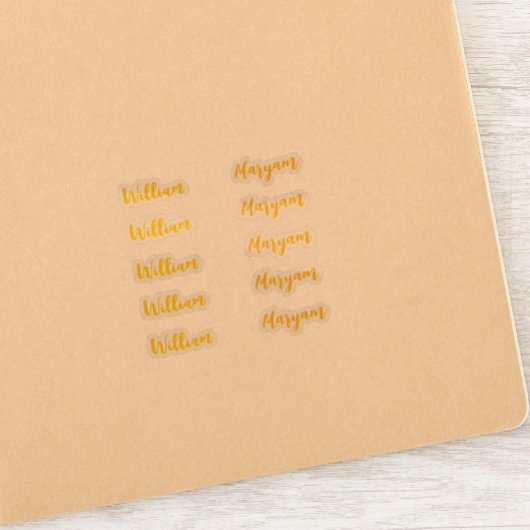 William
William
William
William
William
Maryam
Maryam
Maryam
Maryam
Maryam